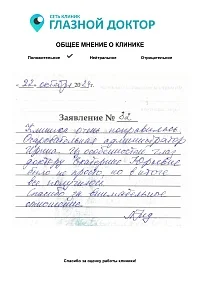 СЕТЬ КЛИНИК
ГЛАЗНОЙ ДОКТОР
ОБЩЕЕ МНЕНИЕ О КЛИНИКЕ
Положительное ✓ Нейтральное Отрицательное
"22" октября 2024г.
Заявление № 32
Клиника очень понравилась.
Очаровательная администратор
Ирина. Из особенностей глаз
доктору Екатерине Юрьевне
было не просто, но в итоге
все получилось
Спасибо за внимательное
отношение.
Спасибо за оценку работы клиники!